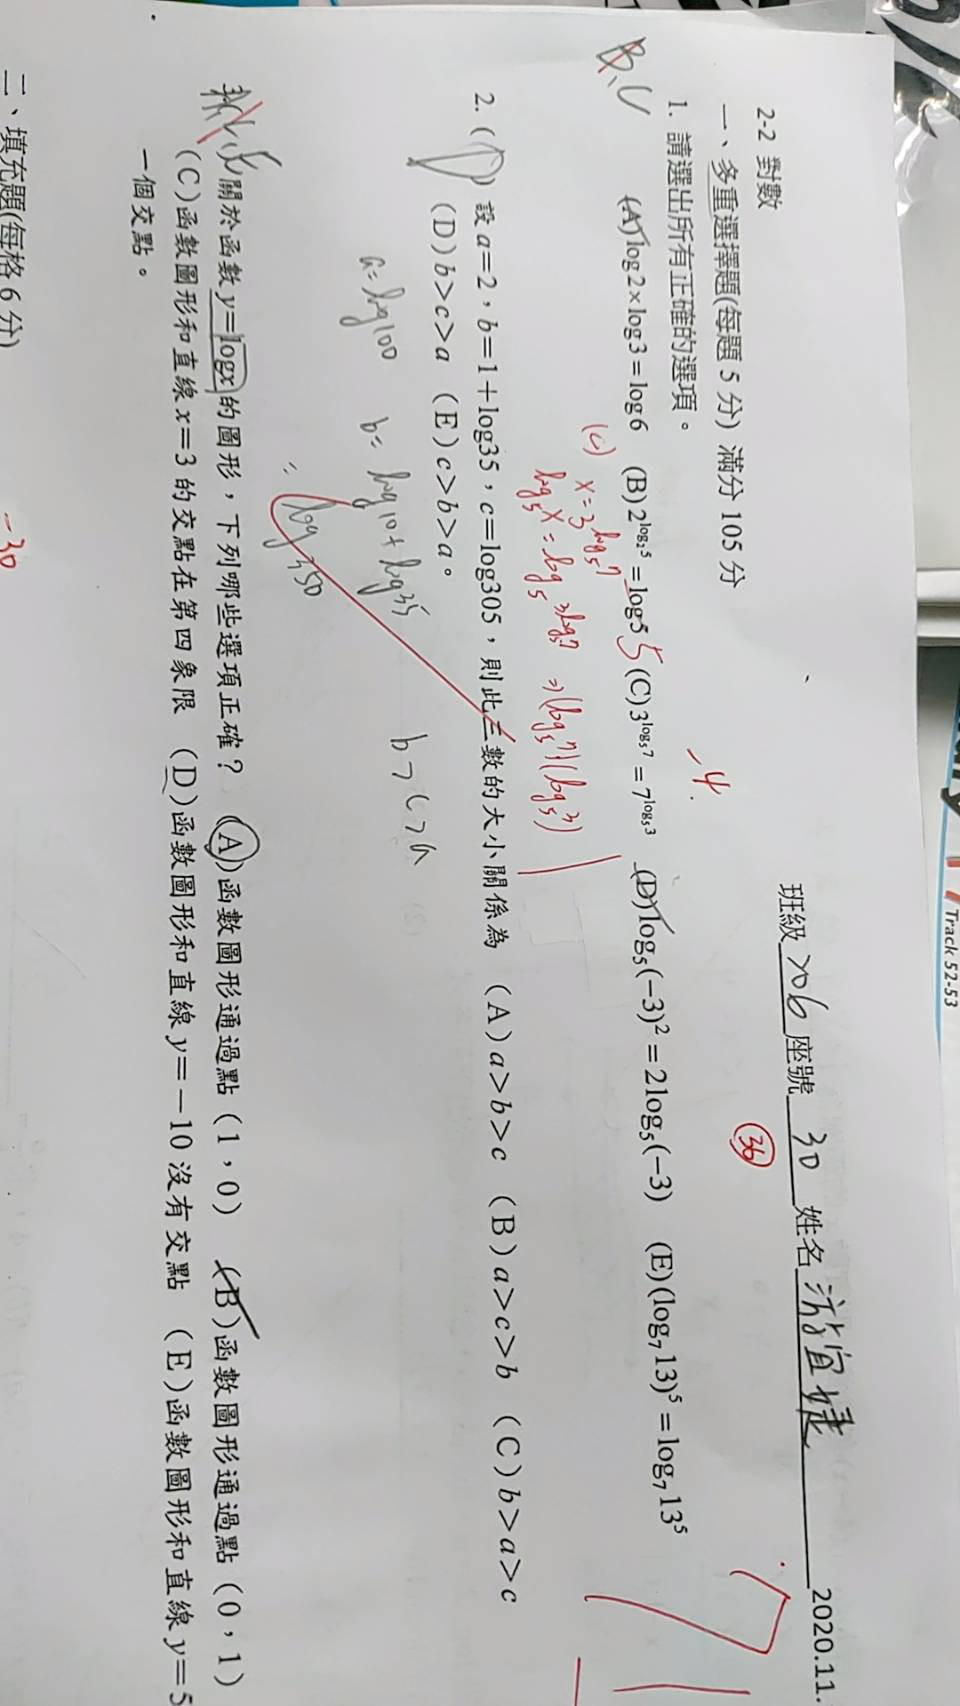 Track 52-53
班級 206 座號 30 姓名 游宜婕 2020.11.
2-2 對數
一、多重選擇題(每題 5 分) 滿分 105 分
-4
36
1. 請選出所有正確的選項。
B、C
(A)log2×log3=log6 (B)2^{log₂5}=log5 5 (C)3^{log₅7}=7^{log₅3} (D)log₅(−3)²=2log₅(−3) (E)(log₇13)⁵=log₇13⁵
(C) x=3^{log₅7}
log₅x=log₅3^{log₅7} ⇒(log₅7)(log₅3)
2. (D) 設 a=2,b=1+log35,c=log305,則此三數的大小關係為 (A)a>b>c (B)a>c>b (C)b>a>c
(D)b>c>a (E)c>b>a。
a=log100 b=log10+log35 b>c>a
=log350
關於函數 y=logx 的圖形,下列哪些選項正確? (A)函數圖形通過點(1,0) (B)函數圖形通過點(0,1)
(C)函數圖形和直線 x=3 的交點在第四象限 (D)函數圖形和直線 y=−10 沒有交點 (E)函數圖形和直線 y=5
一個交點。
-30
二、填充題(每格 6 分)